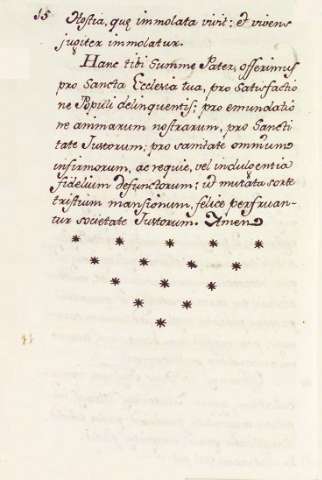 15 Hostia, quę immolata vivit: et vivens
jugiter immolatur.
Hanc tibi Summe Pater, offerimus
pro Sancta Ecclesia tua, pro satisfactio
ne Populi delinquentis; pro emundatio
ne animarum nostrarum, pro Sancti
tate Justorum; pro sanitate omnium
infirmorum, ac requie, vel indulgentia
fidelium defunctorum; ut mutata sorte
tristium mansionum, felice perfruan-
tur societate Justorum. Amen